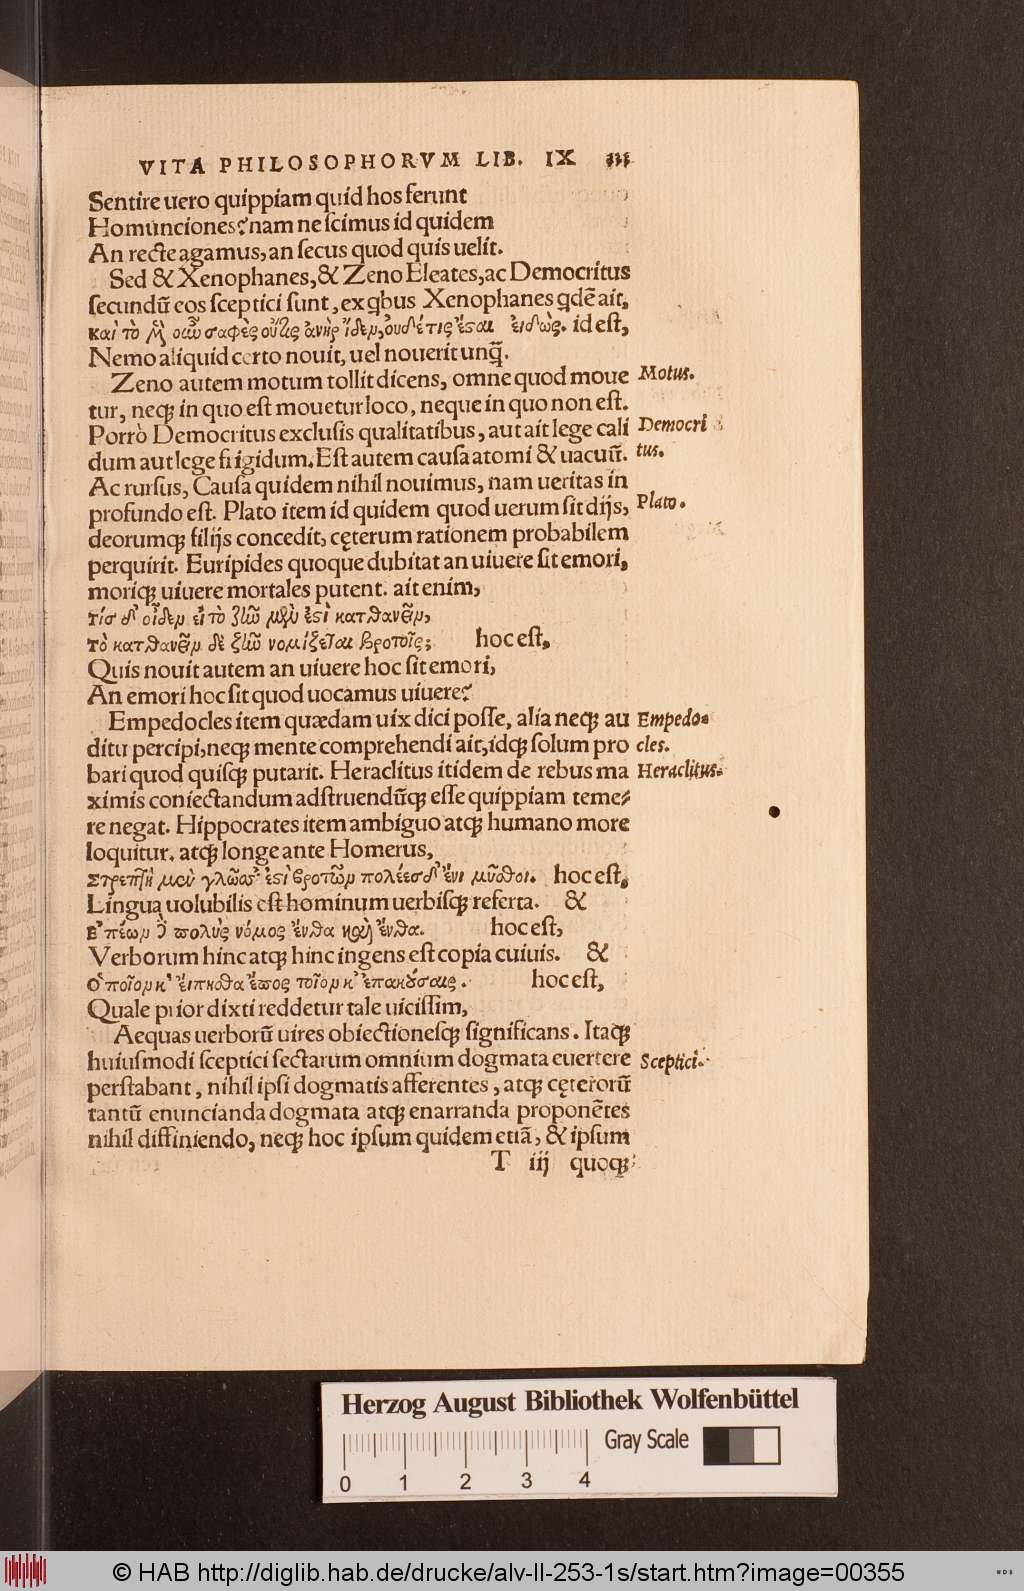 VITA PHILOSOPHORVM LIB. IX
Sentire uero quippiam quid hos ferunt
Homunciones? nam nescimus id quidem
An recte agamus, an secus quod quis uelit.
Sed & Xenophanes, & Zeno Eleates, ac Democritus
secundū eos sceptici sunt, ex qbus Xenophanes qdē ait,
καὶ τὸ μὲν οὖν σαφὲς οὔτις ἀνὴρ ἴδεν, οὐδέ τις ἔσαι εἰδώς. id est,
Nemo aliquid certo nouit, uel nouerit unq̄.
Zeno autem motum tollit dicens, omne quod moue
Motus.
tur, neq; in quo est mouetur loco, neque in quo non est.
Porrò Democritus exclusis qualitatibus, aut ait lege cali
Democri
dum aut lege frigidum. Est autem causa atomi & uacuū.
tus.
Ac rursus, Causa quidem nihil nouimus, nam ueritas in
profundo est. Plato item id quidem quod uerum sit dijs,
Plato.
deorumq; filijs concedit, cęterum rationem probabilem
perquirit. Euripides quoque dubitat an uiuere sit emori,
moriq; uiuere mortales putent. ait enim,
τίσ δ' οἶδεν εἰ τὸ ζῶν μέν ἐσι κατθανεῖν,
τὸ κατθανεῖν δὲ ξῶν νομίξεται βροτοῖς; hoc est,
Quis nouit autem an uiuere hoc sit emori,
An emori hoc sit quod uocamus uiuere?
Empedocles item quædam uix dici posse, alia neq; au
Empedo=
ditu percipi, neq; mente comprehendi ait, idq; solum pro
cles.
bari quod quisq; putarit. Heraclitus itidem de rebus ma
Heraclitus.
ximis coniectandum adstruendūq; esse quippiam teme=
re negat. Hippocrates item ambiguo atq; humano more
loquitur. atq; longe ante Homerus,
στρεπτὴ μὲν γλῶσσ' ἐσὶ βροτῶν πολέες δ' ἔνι μῦθοι. hoc est,
Lingua uolubilis est hominum uerbisq; referta. &
Ἐπέων δὲ πολὺς νόμος ἔνθα καὶ ἔνθα. hoc est,
Verborum hinc atq; hinc ingens est copia cuiuis. &
Ὁποῖον κ' εἴπησθα ἔπος τοῖον κ' ἐπακούσαις. hoc est,
Quale prior dixti reddetur tale uicissim,
Aequas uerborū uires obiectionesq; significans. Itaq;
huiusmodi sceptici sectarum omnium dogmata euertere
Sceptici.
perstabant, nihil ipsi dogmatis afferentes, atq; cęterorū
tantū enuncianda dogmata atq; enarranda proponētes
nihil diffiniendo, neq; hoc ipsum quidem etiā, & ipsum
T iij quoq;
Herzog August Bibliothek Wolfenbüttel
Gray Scale
0 1 2 3 4
© HAB http://diglib.hab.de/drucke/alv-ll-253-1s/start.htm?image=00355